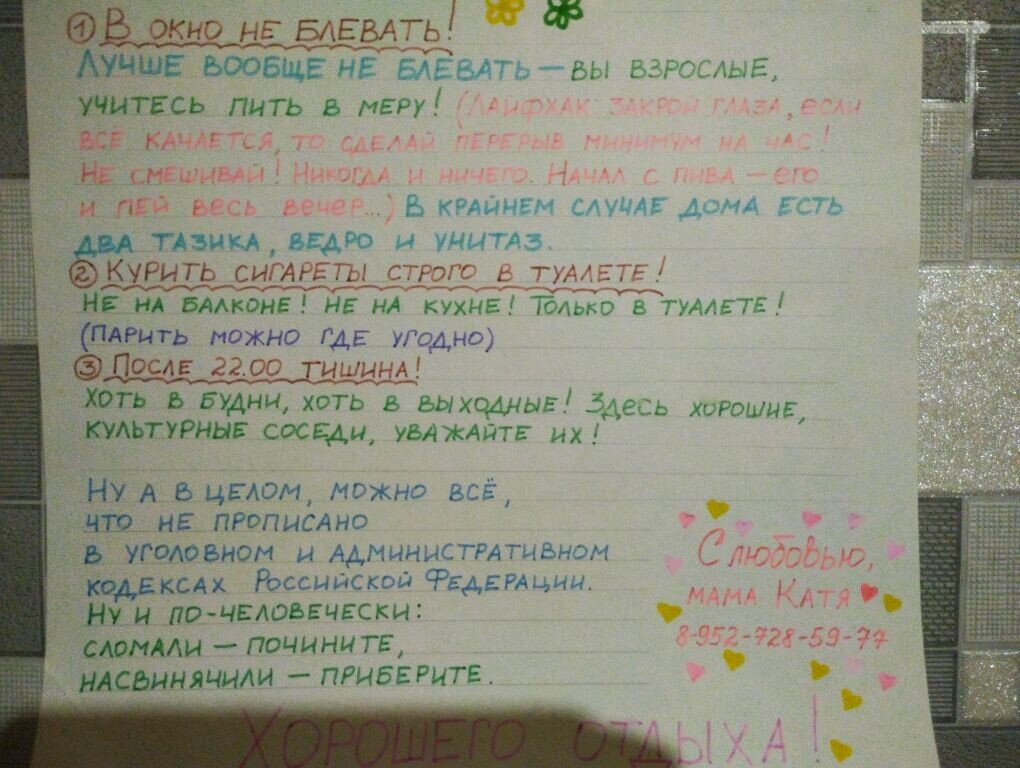 ① В ОКНО НЕ БЛЕВАТЬ!
ЛУЧШЕ ВООБЩЕ НЕ БЛЕВАТЬ — ВЫ ВЗРОСЛЫЕ,
УЧИТЕСЬ ПИТЬ В МЕРУ! (ЛАЙФХАК: ЗАКРОЙ ГЛАЗА, ЕСЛИ
ВСЁ КАЧАЕТСЯ, ТО СДЕЛАЙ ПЕРЕРЫВ МИНИМУМ НА ЧАС!
НЕ СМЕШИВАЙ! НИКОГДА И НИЧЕГО. НАЧАЛ С ПИВА — ЕГО
И ПЕЙ ВЕСЬ ВЕЧЕР...) В КРАЙНЕМ СЛУЧАЕ ДОМА ЕСТЬ
ДВА ТАЗИКА, ВЕДРО И УНИТАЗ.
② КУРИТЬ СИГАРЕТЫ СТРОГО В ТУАЛЕТЕ!
НЕ НА БАЛКОНЕ! НЕ НА КУХНЕ! ТОЛЬКО В ТУАЛЕТЕ!
(ПАРИТЬ МОЖНО ГДЕ УГОДНО)
③ ПОСЛЕ 22.00 ТИШИНА!
ХОТЬ В БУДНИ, ХОТЬ В ВЫХОДНЫЕ! ЗДЕСЬ ХОРОШИЕ,
КУЛЬТУРНЫЕ СОСЕДИ, УВАЖАЙТЕ ИХ!
НУ А В ЦЕЛОМ, МОЖНО ВСЁ,
ЧТО НЕ ПРОПИСАНО
В УГОЛОВНОМ И АДМИНИСТРАТИВНОМ
КОДЕКСАХ РОССИЙСКОЙ ФЕДЕРАЦИИ.
НУ И ПО-ЧЕЛОВЕЧЕСКИ:
СЛОМАЛИ — ПОЧИНИТЕ,
НАСВИНЯЧИЛИ — ПРИБЕРИТЕ.
С любовью,
МАМА КАТЯ
8-952-728-59-77
ХОРОШЕГО ОТДЫХА!